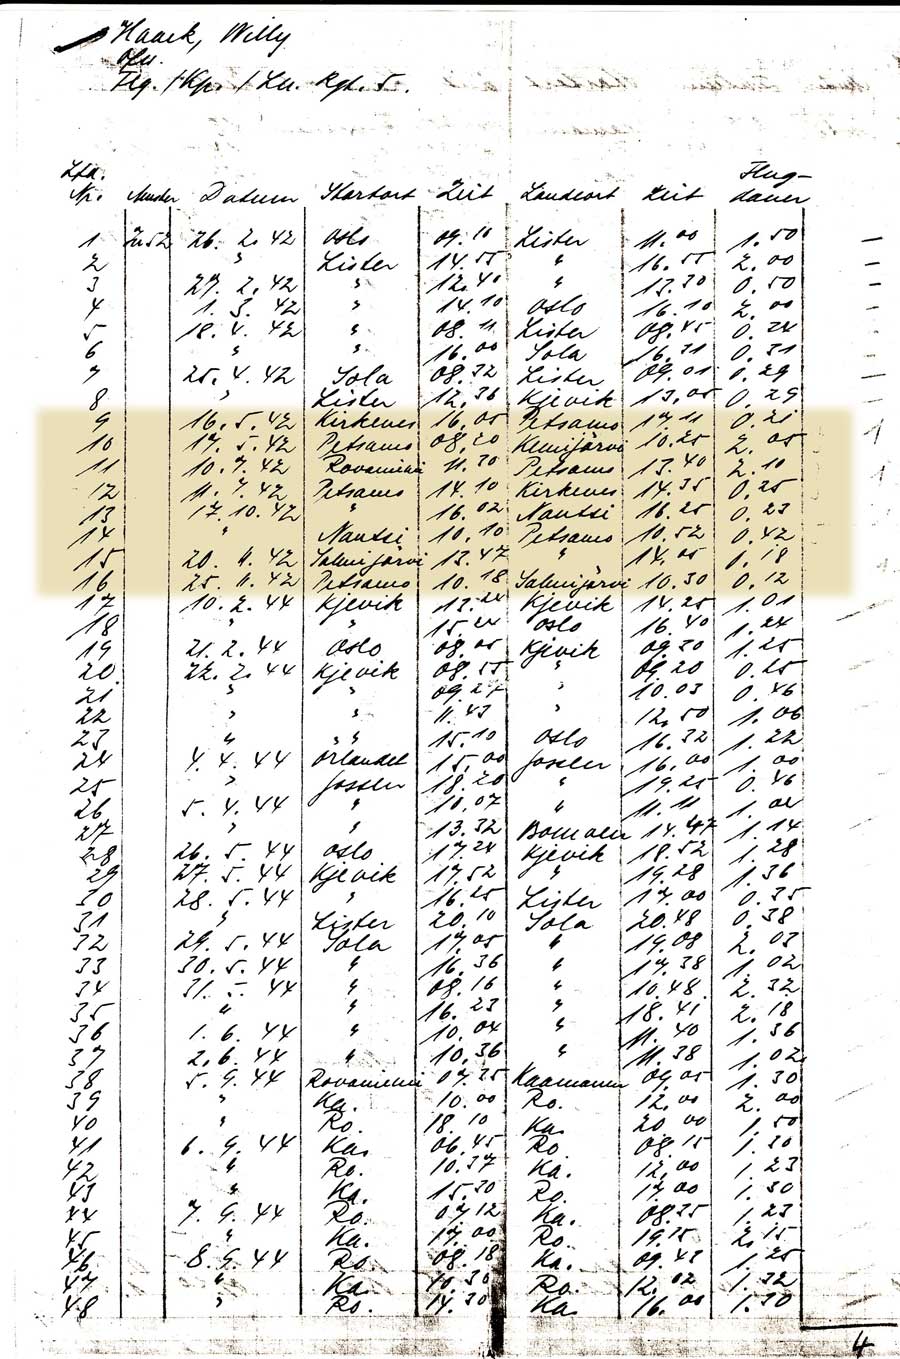 Haack, Willy
Ofw.
Flg. / Kp. / Ln. Rgt. 5.
Flug-
Lfd.
Nr. Muster Datum Startort Zeit Landeort Zeit dauer
1 Ju52 26. 2. 42 Oslo 09.10 Lister 11.00 1.50
2 " Lister 14.55 " 16.55 2.00
3 27. 2. 42 " 12.40 " 13.30 0.50
4 1. 3. 42 " 14.10 Oslo 16.10 2.00
5 18. 4. 42 " 08.11 Lister 08.45 0.34
6 " " 16.00 Sola 16.31 0.31
7 25. 4. 42 Sola 08.32 Lister 09.01 0.29
8 " Lister 12.36 Kjevik 13.05 0.29
9 16. 5. 42 Kirkenes 16.05 Petsamo 17.11 0.21
10 17. 5. 42 Petsamo 08.20 Kemijärvi 10.25 2.05
11 10. 7. 42 Rovaniemi 11.30 Petsamo 13.40 2.10
12 11. 7. 42 Petsamo 14.10 Kirkenes 14.35 0.25
13 17. 10. 42 " 16.02 Nautsi 16.25 0.23
14 " Nautsi 10.10 Petsamo 10.52 0.42
15 20. 11. 42 Salmijärvi 13.47 " 14.05 1.18
16 25. 11. 42 Petsamo 10.18 Salmijärvi 10.30 0.12
17 10. 2. 44 Kjevik 13.24 Kjevik 14.25 1.01
18 " " 15.24 Oslo 16.40 1.24
19 21. 2. 44 Oslo 08.05 Kjevik 09.30 1.25
20 22. 2. 44 Kjevik 08.55 " 09.20 0.25
21 " " 09.27 " 10.03 0.46
22 " " 11.43 " 12.50 1.06
23 " " " 15.10 Oslo 16.32 1.22
24 4. 4. 44 Orlandet 15.00 Gossler 16.00 1.00
25 " Gossler 18.20 " 19.25 0.46
26 5. 4. 44 " 10.07 " 11.11 1.04
27 " " 13.32 14.47 1.14
28 26. 5. 44 Oslo 17.24 Kjevik 18.52 1.28
29 27. 5. 44 Kjevik 17.52 " 19.28 1.36
30 28. 5. 44 " 16.25 Lister 17.00 0.35
31 " Lister 20.10 Sola 20.48 0.38
32 29. 5. 44 Sola 17.05 " 19.08 2.03
33 30. 5. 44 " 16.36 " 17.38 1.02
34 31. 5. 44 " 08.16 " 10.48 2.32
35 " " 16.23 " 18.41 2.18
36 1. 6. 44 " 10.04 " 11.40 1.36
37 2. 6. 44 " 10.36 " 11.38 1.02
38 5. 9. 44 Rovaniemi 07.35 Kaamanen 09.05 1.30
39 " Ka. 10.00 Ro. 12.00 2.00
40 " Ro. 18.10 Ka. 20.00 1.50
41 6. 9. 44 Ka. 06.45 Ro. 08.15 1.30
42 " Ro. 10.37 Ka. 12.00 1.23
43 " Ka. 15.30 Ro. 17.00 1.30
44 7. 9. 44 Ro. 07.12 Ka. 08.35 1.23
45 " Ka. 17.00 Ro. 19.15 2.15
46 8. 9. 44 Ro. 08.18 Ka. 09.43 1.25
47 " Ka. 10.30 Ro. 12.02 1.32
48 " Ro. 14.30 Ka. 16.00 1.30
4